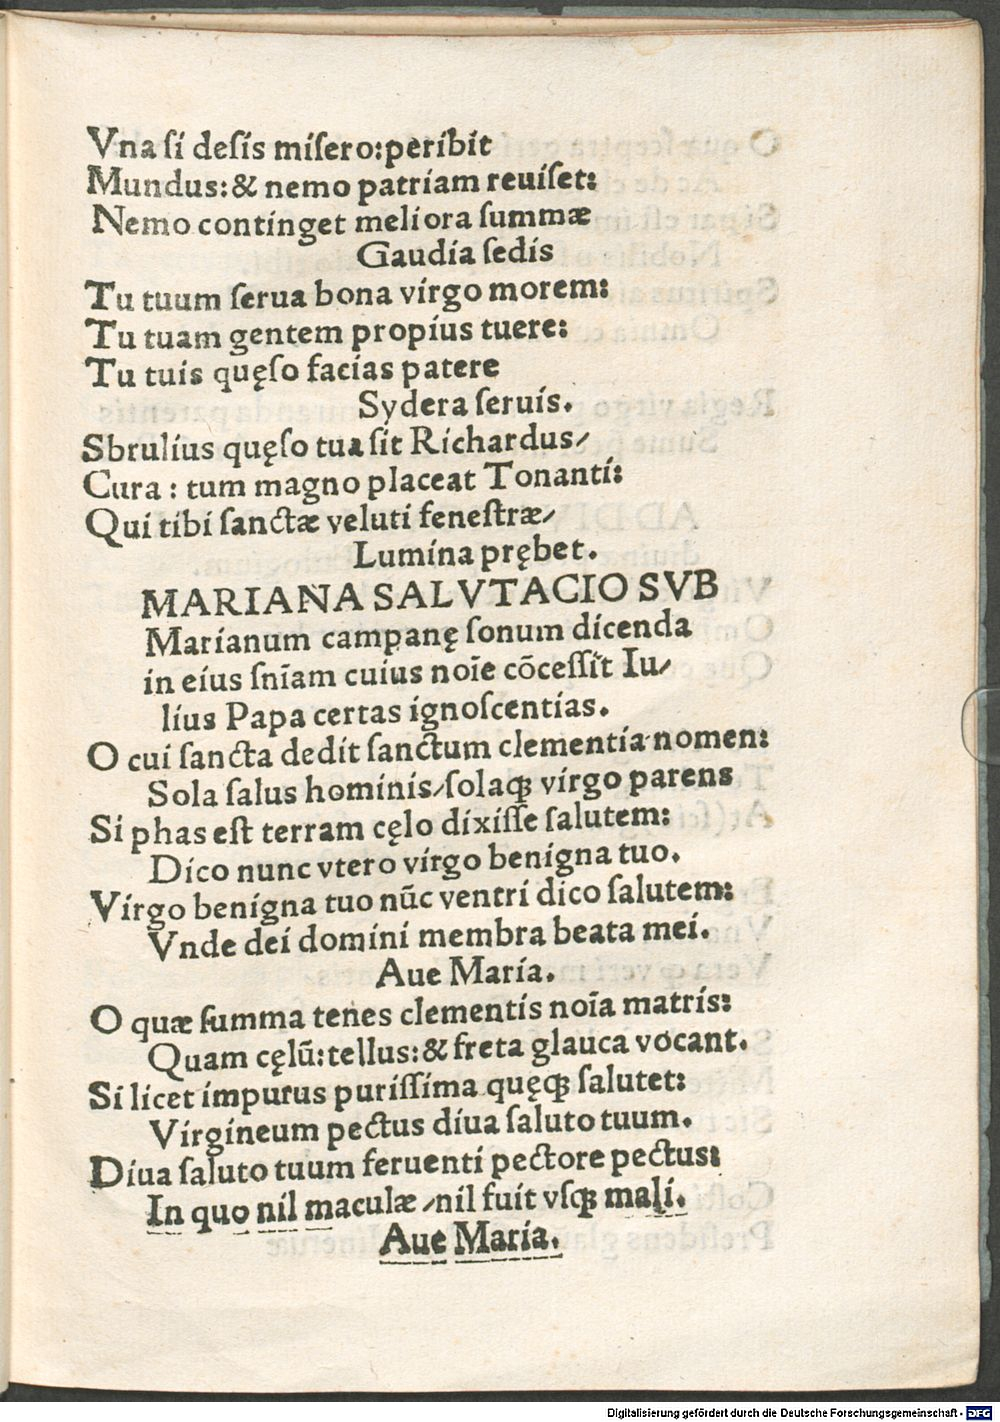 Vna ſi deſis miſero:peribit
Mundus:& nemo patriam reuiſet:
Nemo continget meliora ſummæ
Gaudia ſedis
Tu tuum ſerua bona virgo morem:
Tu tuam gentem propius tuere:
Tu tuis quęſo facias patere
Sydera ſeruis.
Sbrulius quęſo tua ſit Richardus/
Cura : tum magno placeat Tonanti:
Qui tibi ſanctæ veluti feneſtræ/
Lumina prębet.
MARIANA SALVTACIO SVB
Marianum campanę ſonum dicenda
in eius ſnīam cuius noīe cōceſſit Iu/
lius Papa certas ignoſcentias.
O cui ſancta dedit ſanctum clementia nomen:
Sola ſalus hominis/ſolaqꝫ virgo parens
Si phas eſt terram cęlo dixiſſe ſalutem:
Dico nunc vtero virgo benigna tuo.
Virgo benigna tuo nūc ventri dico ſalutem:
Vnde dei domini membra beata mei.
Aue Maria.
O quæ ſumma tenes clementis noīa matris:
Quam cęlū:tellus:& freta glauca vocant.
Si licet impurus puriſſima quęqꝫ ſalutet:
Virgineum pectus diua ſaluto tuum.
Diua ſaluto tuum feruenti pectore pectus:
In quo nil maculæ/nil fuit vſqꝫ mali.
Aue Maria.
Digitalisierung gefördert durch die Deutsche Forschungsgemeinschaft - DFG